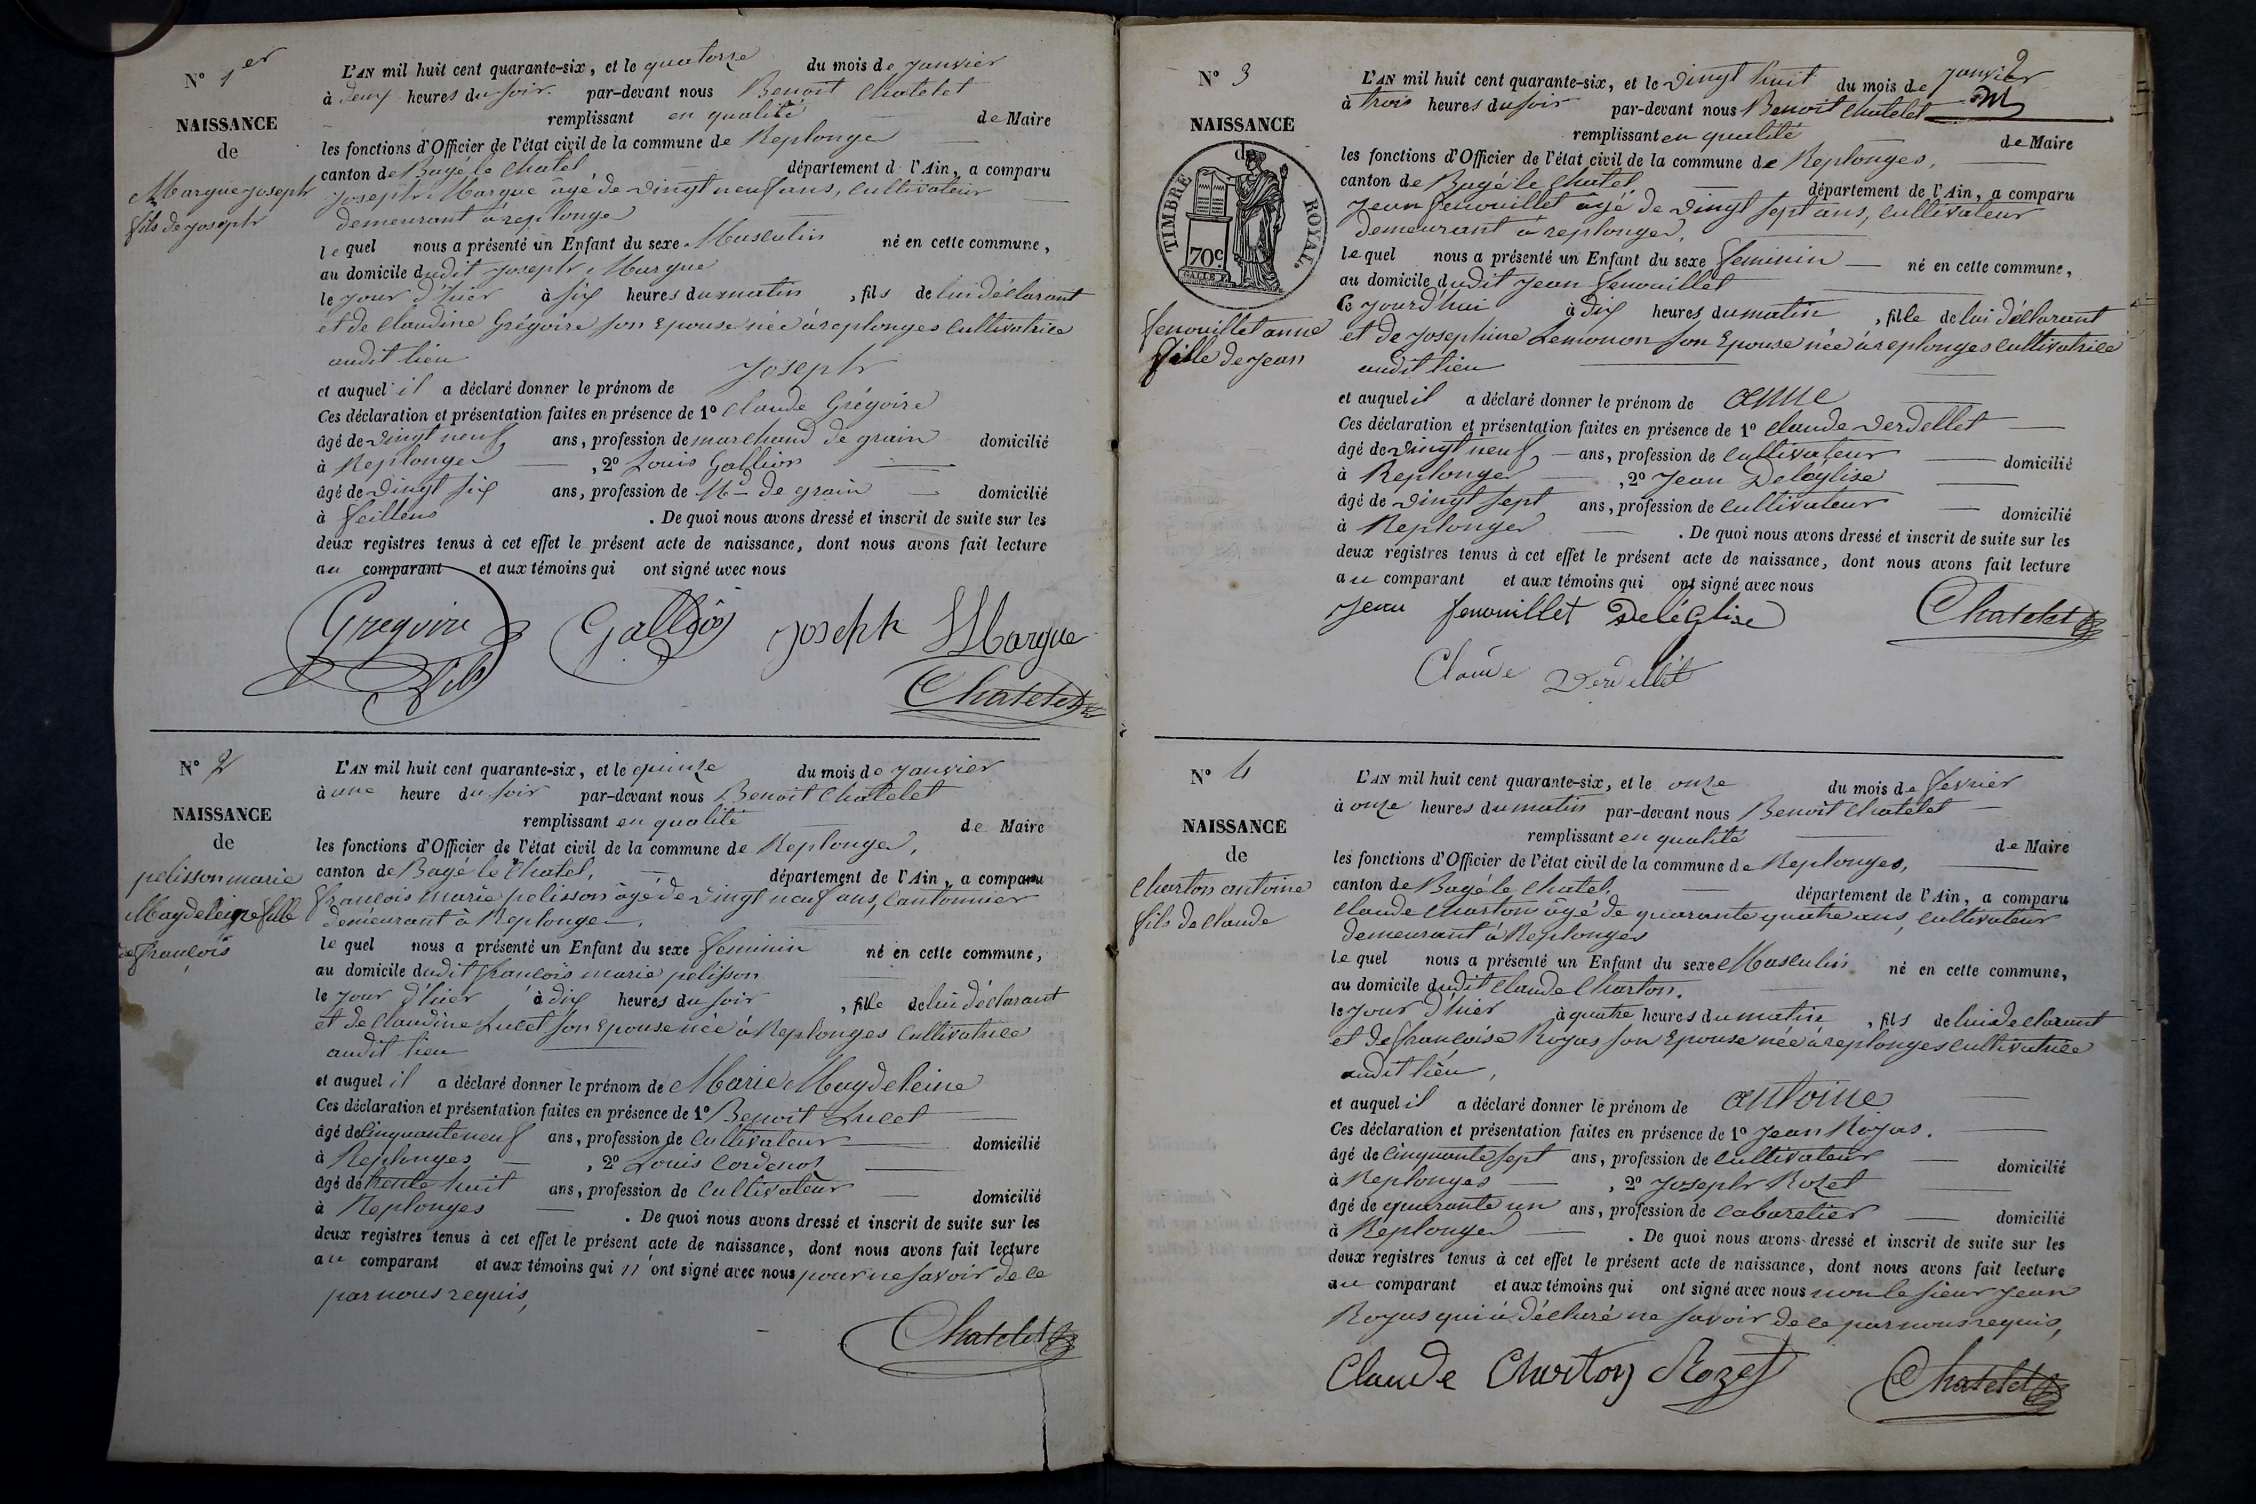 N° 1er
NAISSANCE
de
Margue joseph
fils de joseph
L'AN mil huit cent quarante-six, et le quatorze du mois de janvier
à deux heures du soir par-devant nous Benoit Chatelet
remplissant en qualité de Maire
les fonctions d'Officier de l'état civil de la commune de Replonges
canton de Bagé le Chatel département d l'Ain, a comparu
joseph Margue âgé de vingt neuf ans, cultivateur
demeurant à replonges
lequel nous a présenté un Enfant du sexe Masculin né en cette commune,
au domicile dudit joseph Margue
le jour d'hier à six heures du matin, fils de lui déclarant
et de Claudine Grégoire son Epouse née à replonges Cultivatrice
audit lieu
et auquel il a déclaré donner le prénom de joseph
Ces déclaration et présentation faites en présence de 1° Claude Grégoire
âgé de vingt neuf ans, profession de marchand de grain domicilié
à Replonges, 2° Louis Gallion
âgé de vingt six ans, profession de Md de grain domicilié
à feillens. De quoi nous avons dressé et inscrit de suite sur les
deux registres tenus à cet effet le présent acte de naissance, dont nous avons fait lecture
au comparant et aux témoins qui ont signé avec nous
Gregoire Gallion joseph Margue
Chatelet
N° 2
NAISSANCE
de
pelisson marie
Magdeleine fille
de françois
L'AN mil huit cent quarante-six, et le quinze du mois de janvier
à une heure du soir par-devant nous Benoit Chatelet
remplissant en qualité de Maire
les fonctions d'Officier de l'état civil de la commune de Replonges,
canton de Bagé le Chatel, département de l'Ain, a comparu
françois marie pelisson âgé de vingt neuf ans, Cantonnier
demeurant à Replonges,
lequel nous a présenté un Enfant du sexe feminin né en cette commune,
au domicile dudit françois marie pelisson
le jour d'hier à dix heures du soir, fille de lui déclarant
et de Claudine Lucet son Epouse née à Replonges Cultivatrice
audit lieu
et auquel il a déclaré donner le prénom de Marie Magdeleine
Ces déclaration et présentation faites en présence de 1° Benoit Lucet
âgé de Cinquante neuf ans, profession de Cultivateur domicilié
à Replonges, 2° Louis Cordenot
âgé de trente huit ans, profession de Cultivateur domicilié
à Replonges. De quoi nous avons dressé et inscrit de suite sur les
deux registres tenus à cet effet le présent acte de naissance, dont nous avons fait lecture
au comparant et aux témoins qui n'ont signé avec nous pour ne savoir de ce
par nous requis,
Chatelet
2
N° 3
NAISSANCE
de
TIMBRE ROYAL.
70c
fenouillet anne
fille de jean
L'AN mil huit cent quarante-six, et le vingt huit du mois de janvier
à trois heures du soir par-devant nous Benoit Chatelet
remplissant en qualité de Maire
les fonctions d'Officier de l'état civil de la commune de Replonges,
canton de Bagé le Chatel département de l'Ain, a comparu
jean fenouillet âgé de vingt sept ans, cultivateur
demeurant à replonges,
lequel nous a présenté un Enfant du sexe feminin né en cette commune,
au domicile dudit jean fenouillet
Ce jourd'hui à dix heures du matin, fille de lui déclarant
et de josephine Lemonon son Epouse née à replonges cultivatrice
audit lieu
et auquel il a déclaré donner le prénom de anne
Ces déclaration et présentation faites en présence de 1° Claude Verdellet
âgé de vingt neuf ans, profession de cultivateur domicilié
à Replonges, 2° jean Deléglise
âgé de vingt sept ans, profession de cultivateur domicilié
à Replonges. De quoi nous avons dressé et inscrit de suite sur les
deux registres tenus à cet effet le présent acte de naissance, dont nous avons fait lecture
au comparant et aux témoins qui ont signé avec nous
jean fenouillet Deléglise Chatelet
Claude Verdellet
N° 4
NAISSANCE
de
Charton antoine
fils de Claude
L'AN mil huit cent quarante-six, et le onze du mois de fevrier
à onze heures du matin par-devant nous Benoit Chatelet
remplissant en qualité de Maire
les fonctions d'Officier de l'état civil de la commune de Replonges,
canton de Bagé le Chatel, département de l'Ain, a comparu
Claude Charton âgé de quarante quatre ans, cultivateur
demeurant à Replonges
lequel nous a présenté un Enfant du sexe Masculin né en cette commune,
au domicile dudit Claude Charton.
le jour d'hier à quatre heures du matin, fils de lui declarant
et de françoise Royas son Epouse née à replonges cultivatrice
audit lieu,
et auquel il a déclaré donner le prénom de antoine
Ces déclaration et présentation faites en présence de 1° jean Royas.
âgé de Cinquante sept ans, profession de Cultivateur domicilié
à Replonges, 2° joseph Rozet
âgé de quarante un ans, profession de Cabaretier domicilié
à Replonges. De quoi nous avons dressé et inscrit de suite sur les
deux registres tenus à cet effet le présent acte de naissance, dont nous avons fait lecture
au comparant et aux témoins qui ont signé avec nous non le sieur jean
Royas qui à déclaré ne savoir de ce par nous requis,
Claude Charton Rozet Chatelet